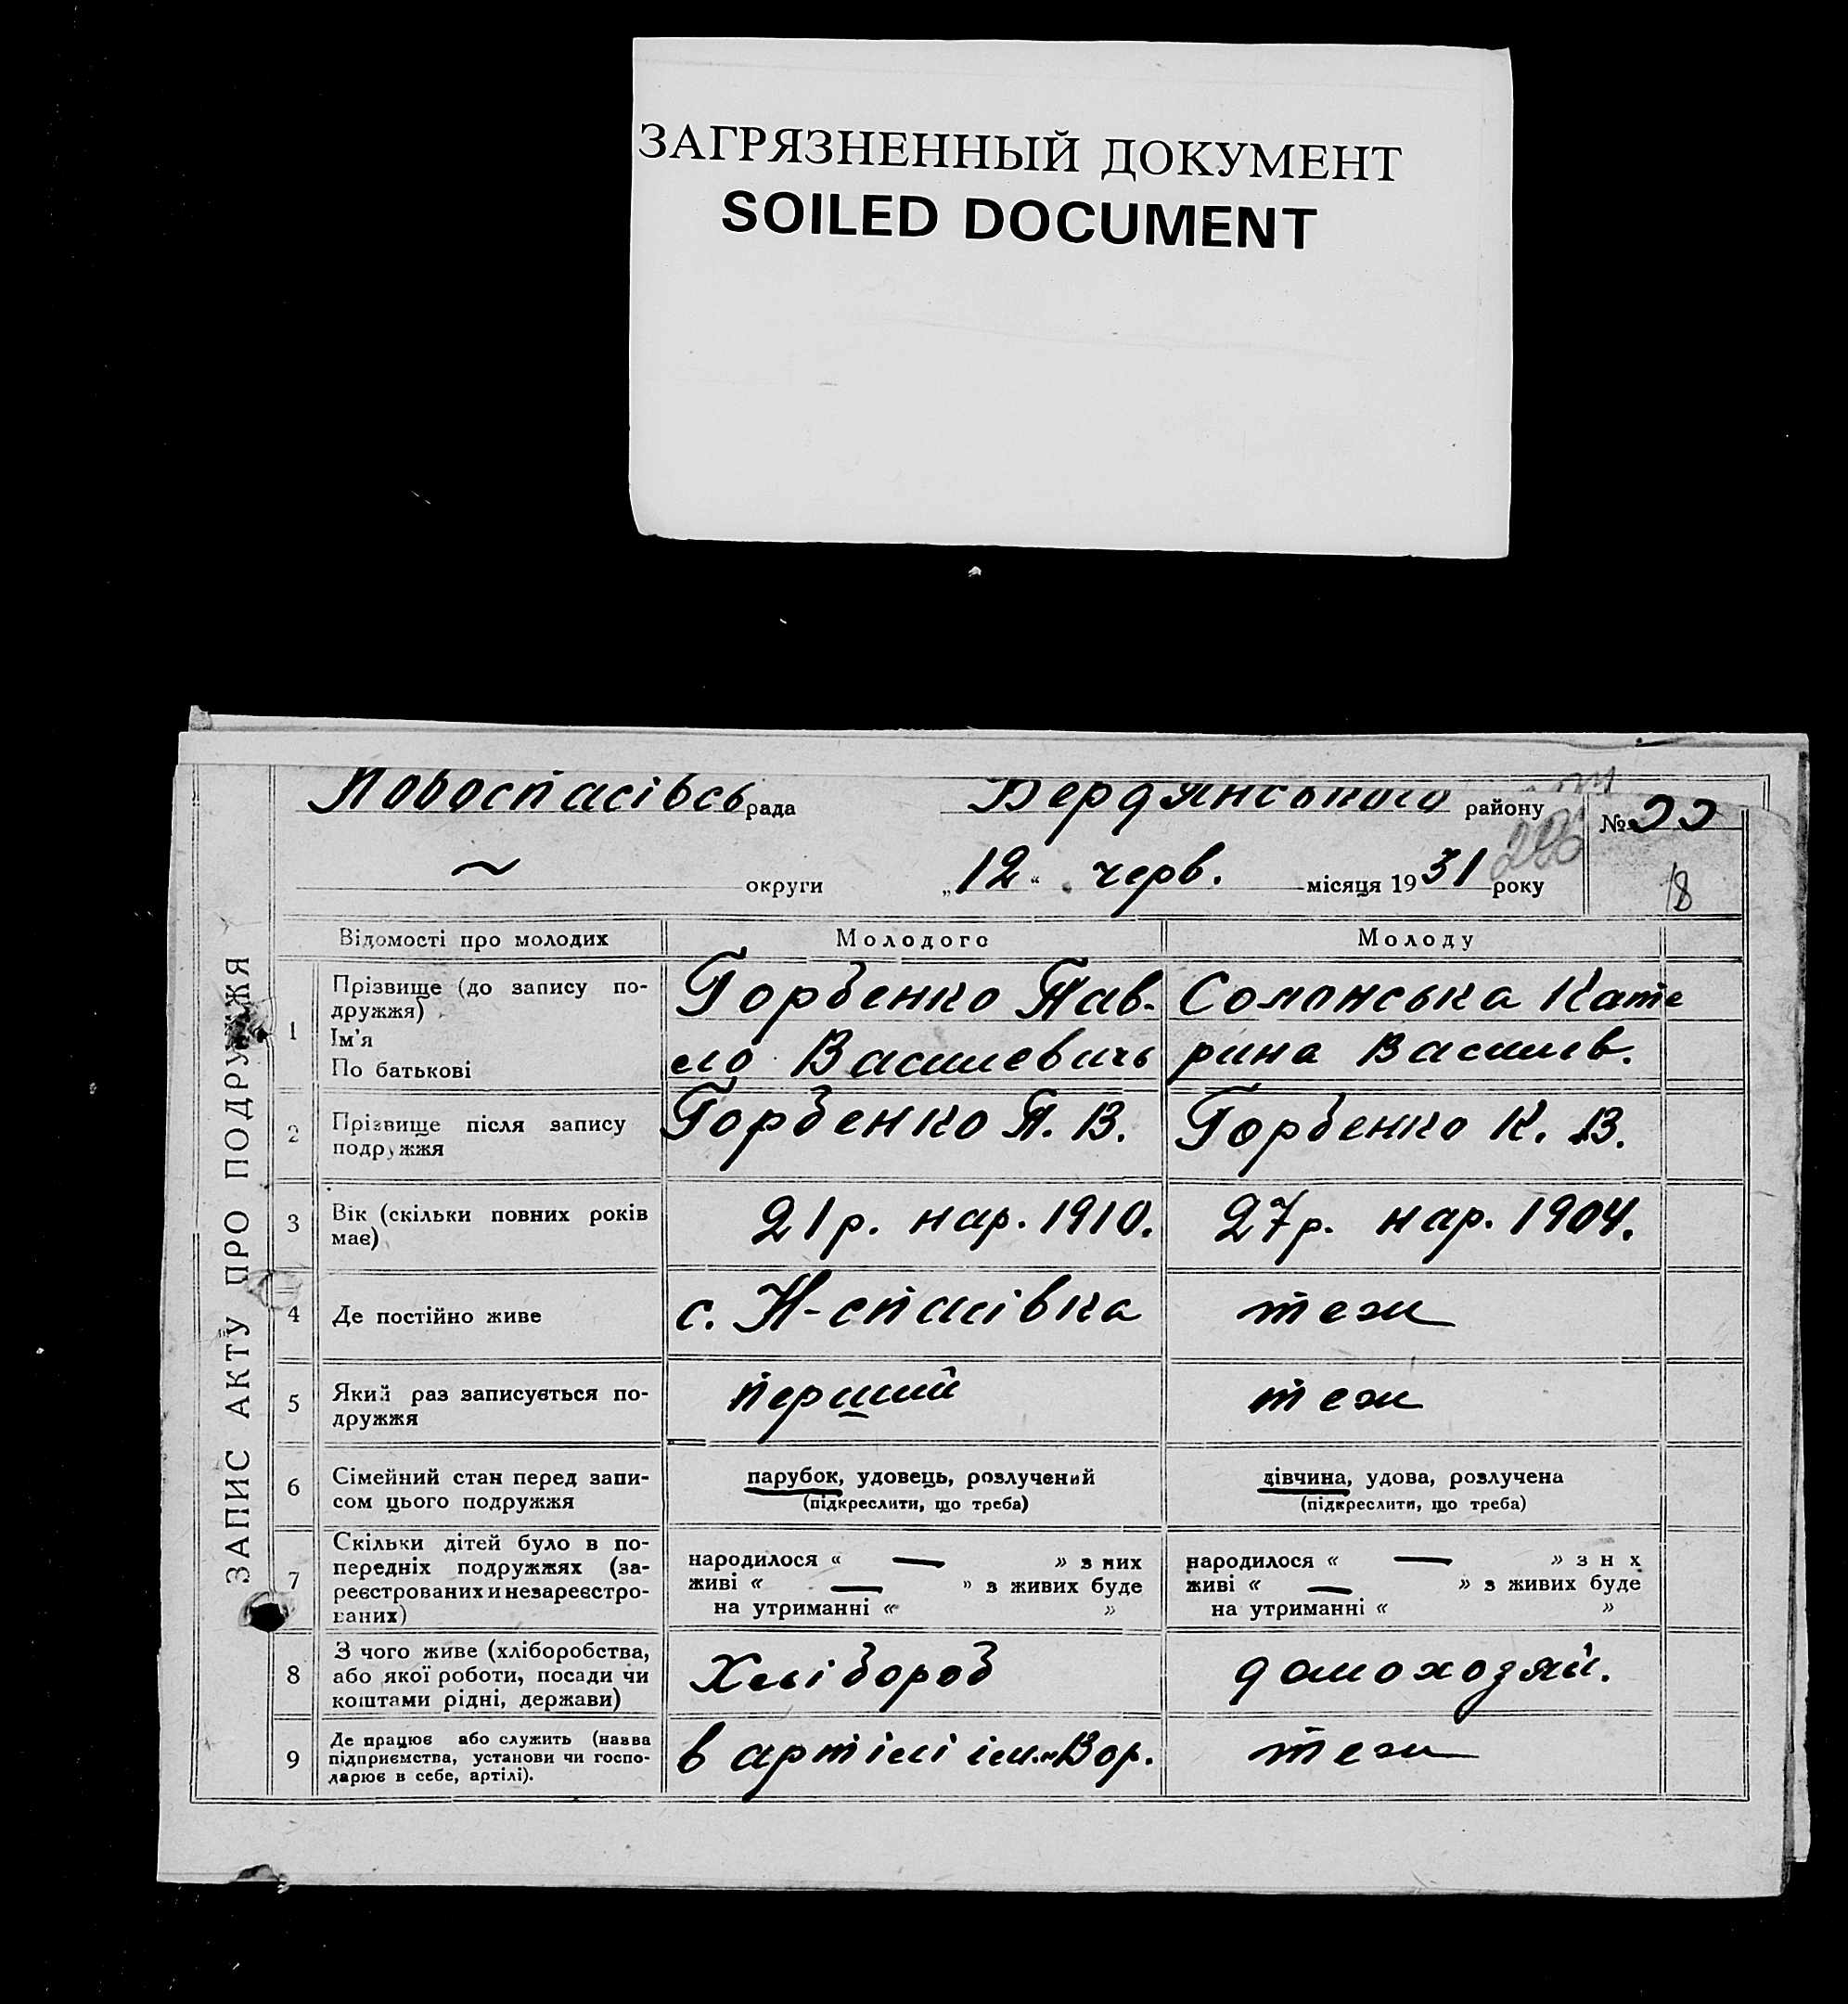 ЗАГРЯЗНЕННЫЙ ДОКУМЕНТ
SOILED DOCUMENT
ЗАПИС АКТУ ПРО ПОДРУЖЖЯ
Новоспасівсь рада Бердянського району №
~ округи „12“ черв. місяця 1931 року
18
Відомості про молодих Молодого Молоду
1 Прізвище (до запису по-
дружжя)
Ім'я
По батькові
Горбенко Пав-
ло Василевичь
Солонська Кате
рина Василів.
2 Прізвище після запису
подружжя
Горбенко П. В. Горбенко К. В.
3 Вік (скільки повних років
має)
21 р. нар. 1910. 27 р. нар. 1904.
4 Де постійно живе с. Н-спасівка теж
5 Який раз записується по-
дружжя
перший теж
6 Сімейний стан перед запи-
сом цього подружжя
парубок, удовець, розлучений
(підкреслити, що треба)
дівчина, удова, розлучена
(підкреслити, що треба)
7 Скільки дітей було в по-
передніх подружжях (за-
реєстрованих и незареєстро-
ваних)
народилося « — » з них
живі « — » з живих буде
на утриманні « »
народилося « — » з н х
живі « — » з живих буде
на утриманні « »
8 З чого живе (хліборобства,
або якої роботи, посади чи
коштами рідні, держави)
Хлібороб домохозяй.
9 Де працює або служить (назва
підприємства, установи чи госпо-
дарює в себе, артілі).
в артілі ім. Вор. теж